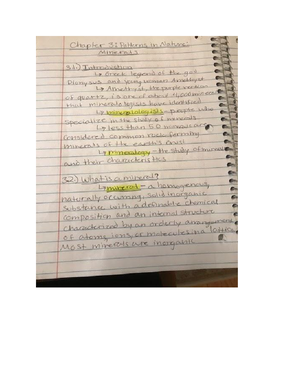 Chapter 3: Patterns in Nature:
Minerals
3.1) Introduction
↳ Greek legend of the god
Dionysus and young woman Amethyst
↳ Amethyst, the purple version
of quartz, is one of about
that mineralogists have identified
↳ mineralogists - people who
specialize in the study of minerals.
↳ less than 50 minerals are
considered common rock-forming
minerals of the earth's crust
↳ mineralogy - the study of minerals
and their characteristics
3.2) What is a mineral?
↳ mineral - a homogenous,
naturally occurring, solid inorganic
substance with a definable chemical
composition and an internal structure
characterized by an orderly arrangement
of atoms, ions, or molecules in a lattice.
Most minerals are inorganic